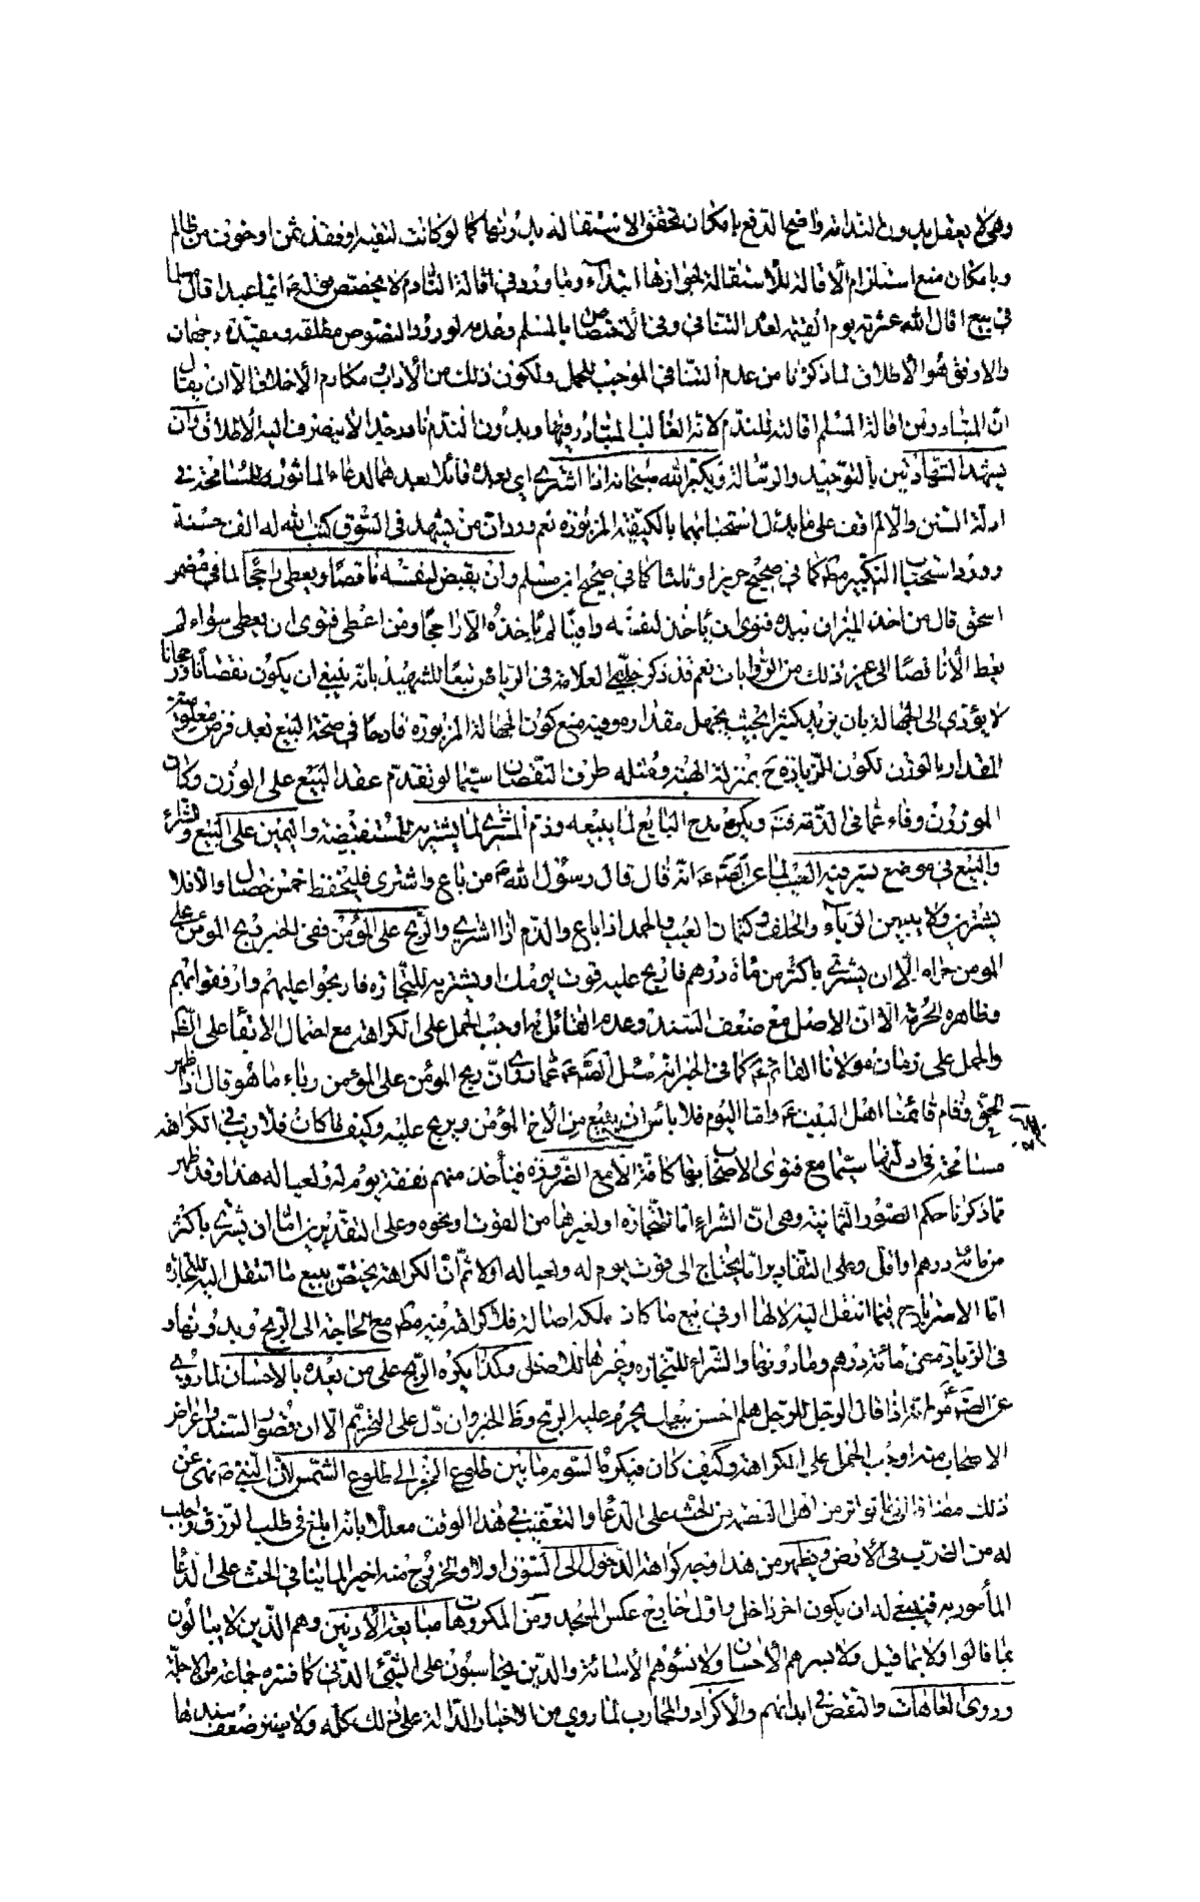 وهى لا يعقل بدون الندامة واضح الدفع بامكان تحقق الاستقالة بدونها كما لو كانت لتقية او فقد ثمن او خوف من ظالم
وبامكان منع استلزام الاقالة للاستقالة لجوازها ابتداء وما ورد فى اقالة النادم لا يخصص قوله ايما عبد اقال مسلما
فى بيع اقال الله عثرته يوم القيمة لعدم التنافى وفى الاختصاص بالمسلم وعدمه لورود النصوص مطلقة ومقيدة وجهان
والاوفق هو الاطلاق لما ذكرنا من عدم التنافى الموجب للحمل ولكون ذلك من الاداب ومكارم الاخلاق الا ان يقال
ان المتبادر من اقالة المسلم اقالته للندم لانه الغالب المتبادر فيها وبدون الندم نادر جدا لا ينصرف اليه الاطلاق وان
يشهد الشهادتين بالتوحيد والرسالة ويكبر الله سبحانه اذا اشترى اى بعده قائلا بعدهما الدعاء الماثور للمسامحة فى
ادلة السنن والا لم اقف على ما يدل استحبابهما بالكيفية المزبورة نعم ورد ان من يشهد فى السوق كتب الله له الف حسنة
وورد استحباب التكبير مط كما فى صحيح حريز او ثلثا كما فى صحيح ابن مسلم وان يقبض لنفسه ناقصا ويعطى راجحا لما فى مضمر
اسحق قال من اخذ الميزان بيده فنوى ان ياخذ لنفسه وافيا لم ياخذه الا راجحا ومن اعطى فنوى ان يعطى سواء لم
يعط الا ناقصا الى غير ذلك من الروايات نعم قد ذكر العلامة فى تبعا للشهيد بانه ينبغى ان يكون نقصانا ورجحانا
لا يؤدى الى الجهالة بان يزيد كثيرا بحيث يجهل مقداره وفيه منع كون الجهالة المزبورة قادحة فى صحة البيع بعد فرض معلومية
المقدار بالوزن لكون الزيادة ح بمنزلة الهبة ومثله طرف النقصان سيما لو تقدم عقد البيع على الوزن وكان
الموزون وفاء عما فى الذمة ويكره مدح البايع لما يبيعه وذم المشترى لما يشتريه للمستفيضة واليمين على البيع والشراء
والبيع فى موضع يستر فيه العيب لما عن انه قال قال رسول الله ص من باع واشترى فليحفظ خمس خصال والا فلا
يشترين ولا يبيعن الرباء والحلف وكتمان العيب والحمد اذا باع والذم اذا اشترى والربح على المؤمن ففى الخبر ربح المؤمن على
المومن حرام الا ان يشترى باكثر من مائة درهم فاربح عليه قوت يومك او يشتريه للتجارة فاربحوا عليهم وارفقوا بهم
وظاهره الحرمة الا ان الاصل مع ضعف السند وعدم القائل بها وجب الحمل على الكراهة مع احتمال الابقاء على الظاهر
والحمل على زمان مولانا القائم ع كما فى الخبر انه سئل الصادق ع عما روى ان ربح المؤمن على المؤمن رباء ما هو قال ذا اذا ظهر
الحق وقام قائمنا اهل البيت ع واما اليوم فلا بأس ان يبيع من الاخ المؤمن ويربح عليه وكيف ما كان فلا ريب فى الكراهة
مسامحة فى ادلتها سيما مع فتوى الاصحاب بها كافة الا مع الضرورة فيأخذ منهم نفقة يوم له ولعياله هذا وقد ظهر
مما ذكرنا حكم الصور الثمانية وهى ان الشراء اما للتجارة او لغيرها من القوت او نحوه وعلى التقديرين اما ان يشترى باكثر
من مائة درهم او اقل وعلى التقادير اما يحتاج الى قوت يوم له ولعياله او لا ثم ان الكراهة يختص ببيع ما انتقل اليه للتجارة
اما الاسترباح فيما انتقل اليه لا لها او فى بيع ما كان ملكه اصالة فلا كراهة فيه مط مع الحاجة الى الربح وبدونها و
فى الزيادة عن مائة درهم وما دونها والشراء للتجارة وغيرها للاصل وكذا يكره الربح على من يعده بالاحسان لما روى
عن الصادق انه اذا قال الرجل للرجل هلم احسن بيعك يحرم عليه الربح وظ الخبر وان دل على التحريم الا ان قصور السند واعراض
الاصحاب عنه اوجب الحمل على الكراهة وكيف كان فيكره السوم ما بين طلوع الفجر الى طلوع الشمس لان النبى ص نهى عن
ذلك مضافا الى ما تواتر من اهل العصمة من الحث على الدعاء والتعقيب فى هذا الوقت معللا بانه ابلغ فى طلب الرزق واجلب
له من الضرب فى الارض ويظهر من هذا وجه كراهة الدخول الى السوق اولا والخروج منه اخيرا لما ينافى الحث على الدعاء
المأمور به فينبغى له ان يكون اخر داخل واول خارج عكس المسجد ومن المكروهات مبايعة الادنين وهم الذين لا يبالون
بما قالوا ولا بما قيل ولا يسرهم الاحسان ولا تسؤهم الاسائة والذين يحاسبون على الشئ الدنى كما فسره جماعة من الاجلة
وذوى العاهات والنقص فى ابدانهم والاكراد والمحارب لما روى من الاخبار الدالة على ذلك كله ولا يضر ضعف سندها